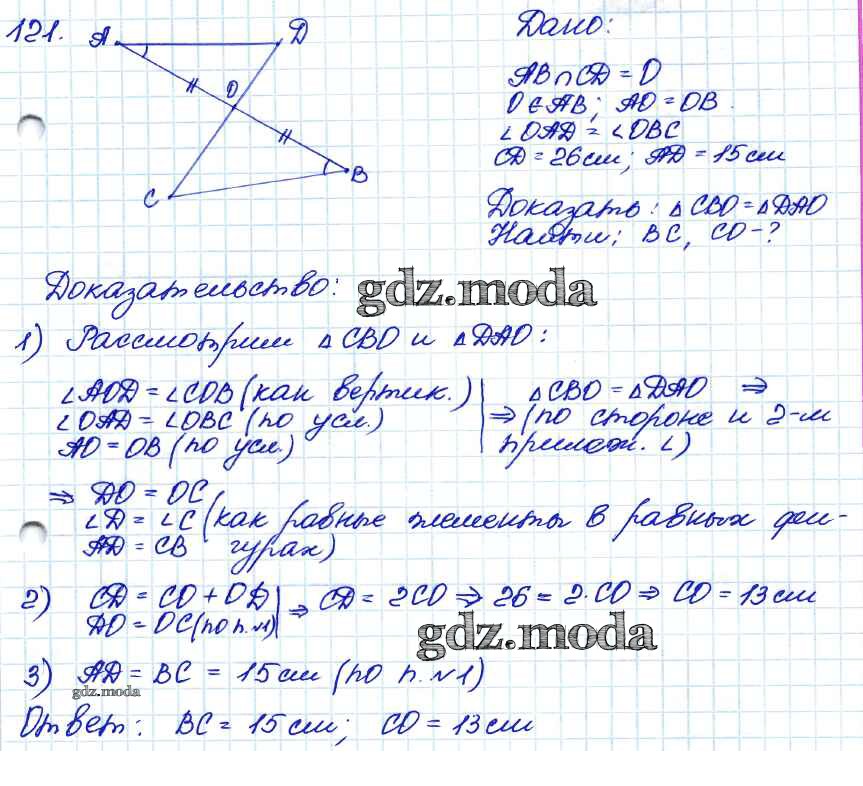 121.
A D
O
C B
Дано:
AB∩CD = O
O∈AB; AO = OB.
∠OAD = ∠OBC
CD = 26см; AD = 15см
Доказать: △CBO = △DAO
Найти; BC, CO - ?
Доказательство:
gdz.moda
1) Рассмотрим △CBO и △DAO:
∠AOD = ∠COB (как вертик.)
∠OAD = ∠OBC (по усл.)
AO = OB (по усл.)
△CBO = △DAO ⇒
⇒ (по стороне и 2-м
прилеж. ∠)
⇒ DO = OC
∠D = ∠C (как равные элементы в равных фи-
AD = CB гурах)
2) CD = CO + OD
DO = OC (по п.№1)
⇒ CD = 2CO ⇒ 26 = 2·CO ⇒ CO = 13см
gdz.moda
3) AD = BC = 15см (по п.№1)
gdz.moda
Ответ: BC = 15см; CO = 13см